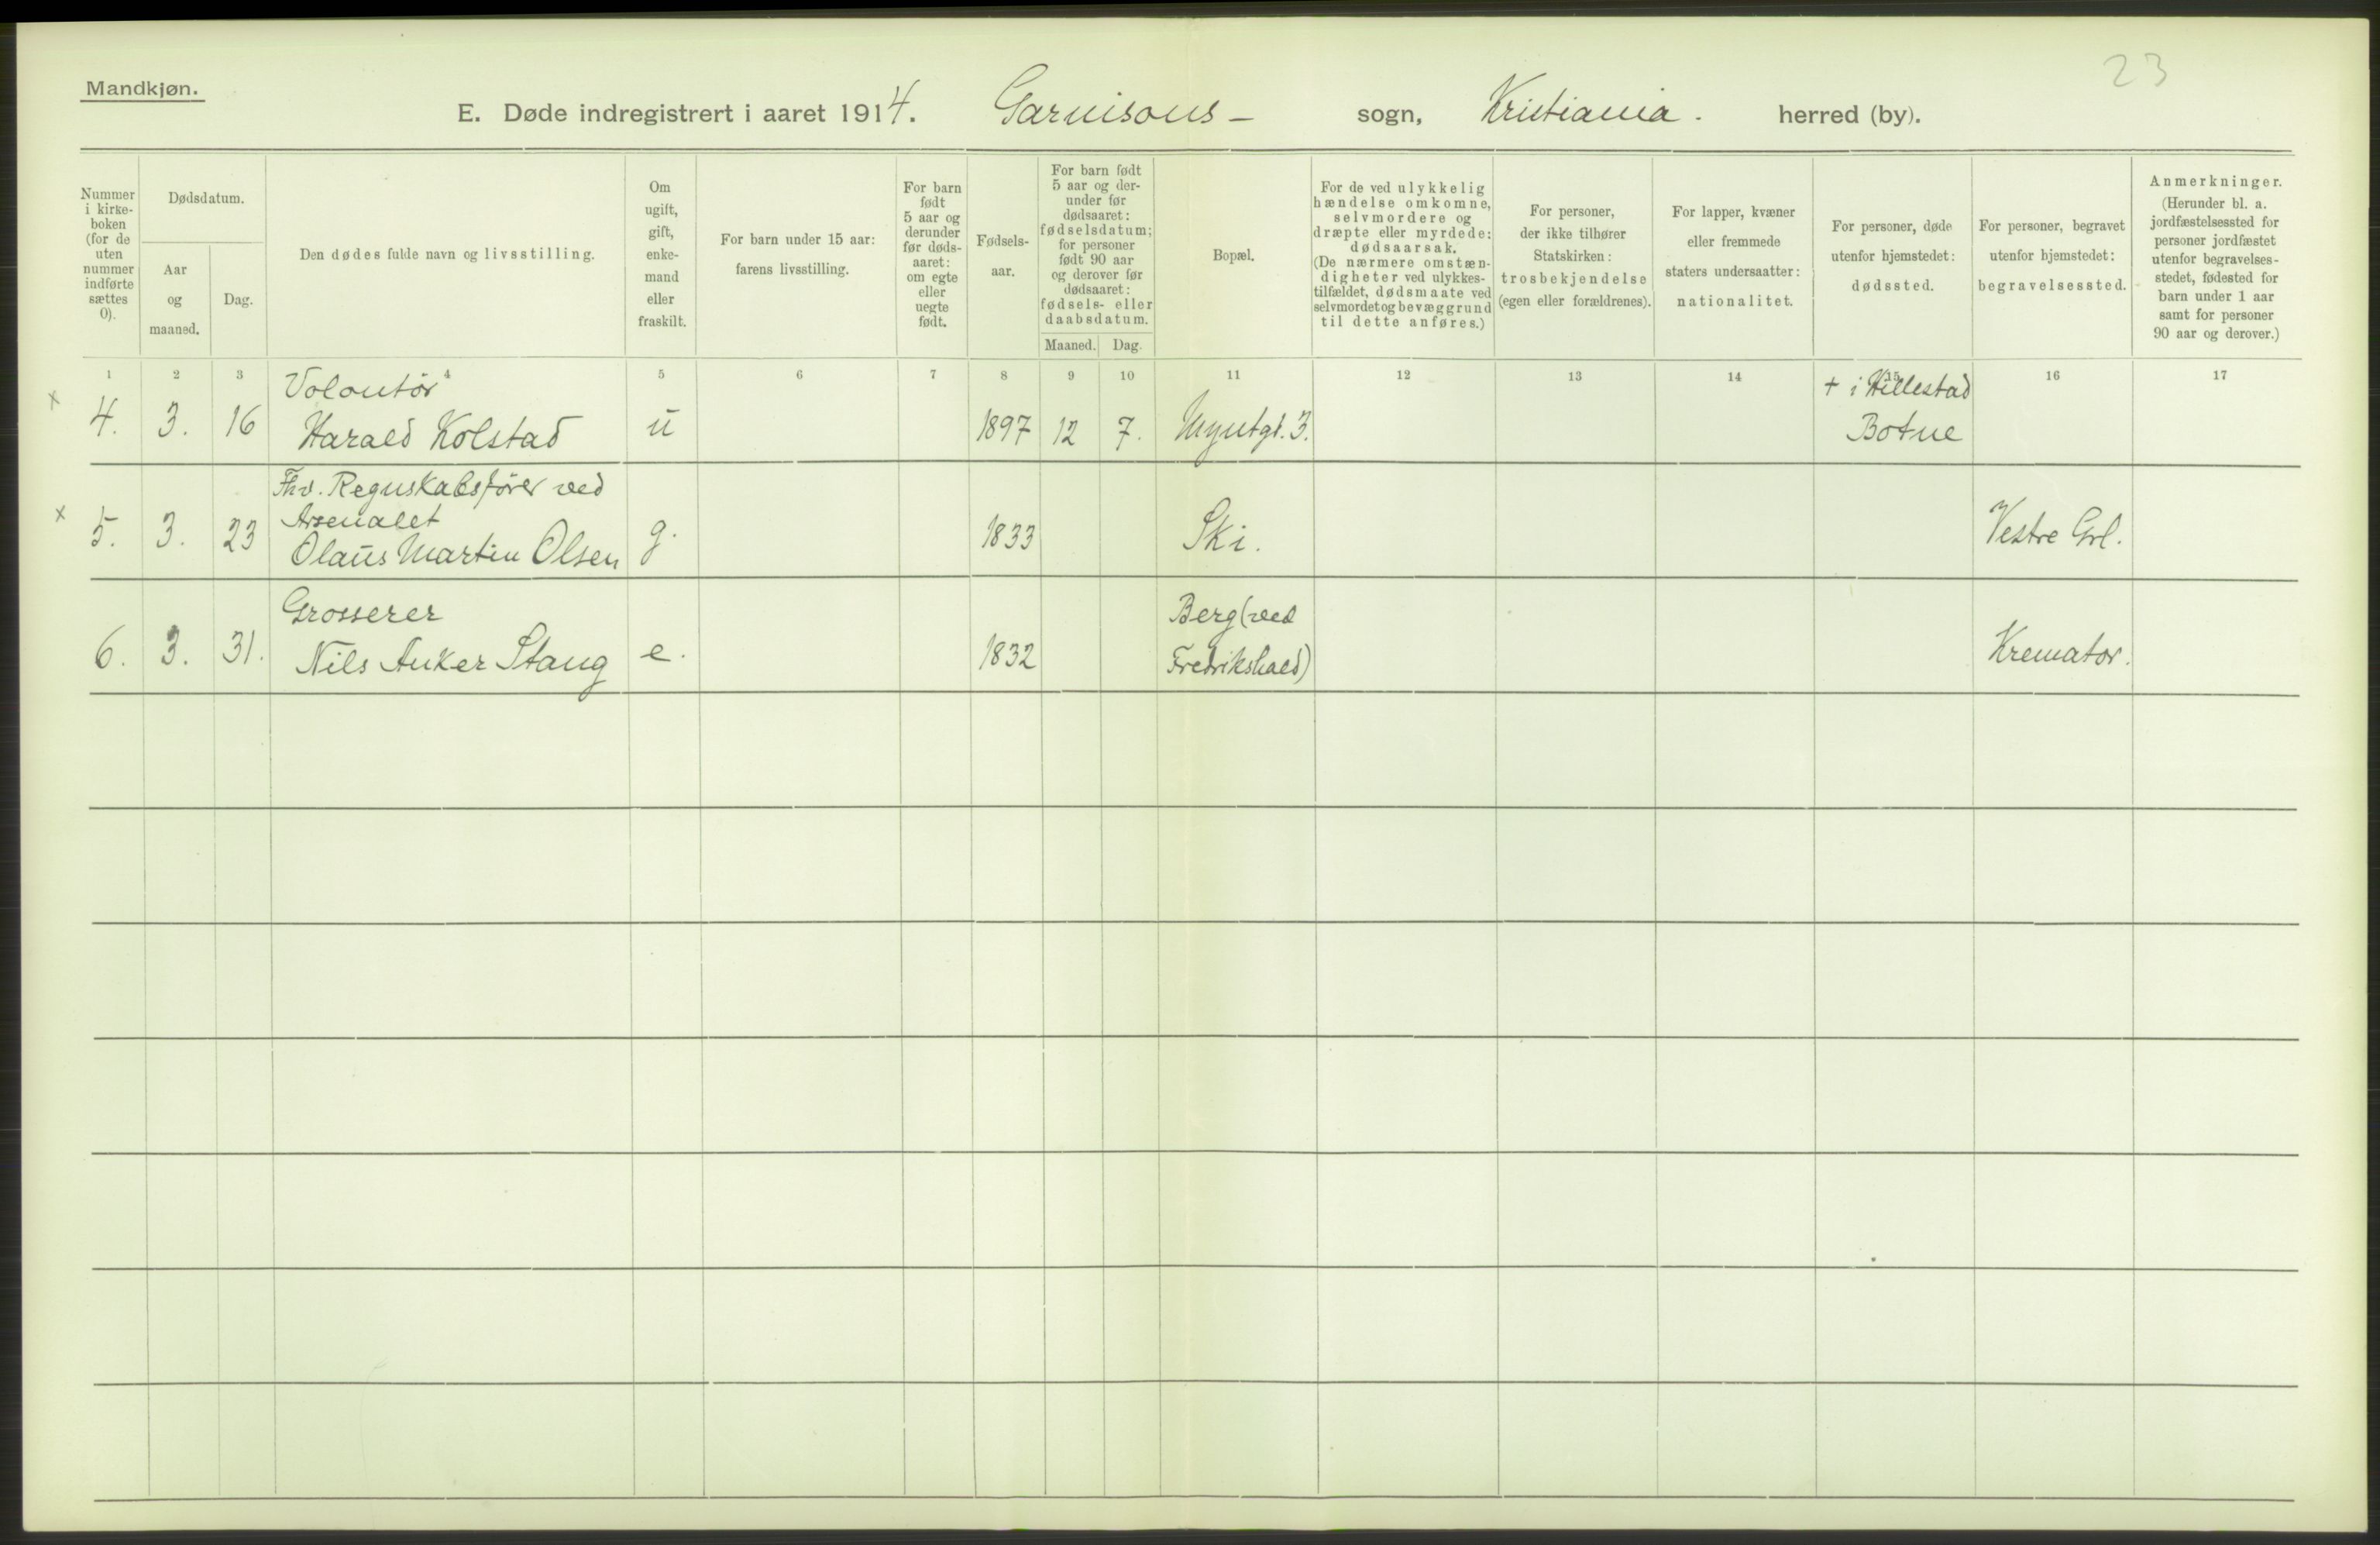 23
Mandkjøn.
E. Døde indregistrert i aaret 1914. Garnisons- sogn, Kristiania. herred (by).
Nummer
i kirke-
boken
(for de
uten
nummer
indførte
sættes
0).
Dødsdatum.
Aar
og
maaned.
Dag.
Den dødes fulde navn og livsstilling.
Om
ugift,
gift,
enke-
mand
eller
fraskilt.
For barn under 15 aar:
farens livsstilling.
For barn
født
5 aar og
derunder
før døds-
aaret:
om egte
eller
uegte
født.
Fødsels-
aar.
For barn født
5 aar og der-
under før
dødsaaret:
fødselsdatum;
for personer
født 90 aar
og derover før
dødsaaret:
fødsels- eller
daabsdatum.
Maaned. Dag.
Bopæl.
For de ved ulykkelig
hændelse omkomne,
selvmordere og
dræpte eller myrdede:
dødsaarsak.
(De nærmere omstæn-
digheter ved ulykkes-
tilfældet, dødsmaate ved
selvmordet og bevæggrund
til dette anføres.)
For personer,
der ikke tilhører
Statskirken:
trosbekjendelse
(egen eller forældrenes).
For lapper, kvæner
eller fremmede
staters undersaatter:
nationalitet.
For personer, døde
utenfor hjemstedet:
dødssted.
For personer, begravet
utenfor hjemstedet:
begravelsessted.
Anmerkninger.
(Herunder bl. a.
jordfæstelsessted for
personer jordfæstet
utenfor begravelses-
stedet, fødested for
barn under 1 aar
samt for personer
90 aar og derover.)
1 2 3 4 5 6 7 8 9 10 11 12 13 14 15 16 17
Volontør + i Hillestad
x 4. 3. 16 Harald Kolstad u 1897 12 7. Myntgt. 3. Botne
Fhv. Regnskabsfører ved
Arsenalet
x 5. 3. 23 Olaus Martin Olsen g. 1833 Ski. Vestre Grl.
Grosserer Berg (ved
6. 3. 31. Nils Anker Stang e. 1832 Fredrikshald) Kremator.